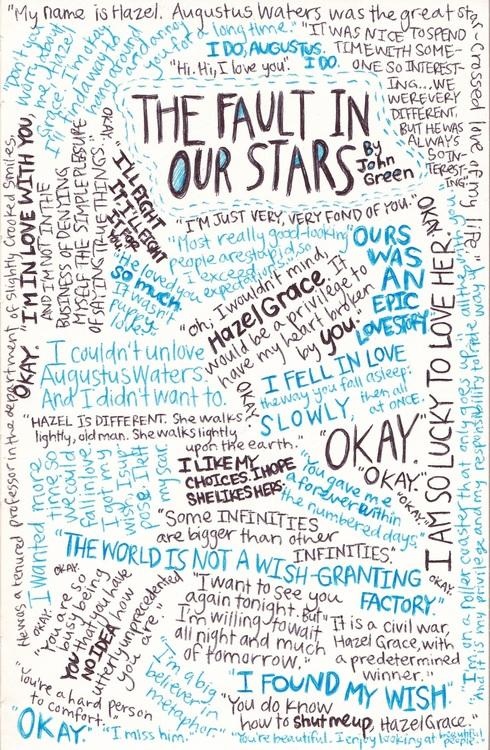 "My name is Hazel. Augustus Waters was the great star-crossed love of my life."
"Don't you
worry about
me, Hazel
Grace. I'm okay.
I'll find a way to
hang around
and annoy
you for a long time."
I DO, AUGUSTUS.
I DO.
"Hi. Hi, I love you."
"IT WAS NICE TO SPEND
TIME WITH SOME-
ONE SO INTEREST-
ING...WE
WERE VERY
DIFFERENT,
BUT HE WAS
ALWAYS
SO IN-
TEREST-
ING."
THE FAULT IN
OUR STARS
By
John
Green
"I'M IN LOVE WITH YOU,
AND I'M NOT IN THE
BUSINESS OF DENYING
MYSELF THE SIMPLE PLEASURE
OF SAYING TRUE THINGS."
OKAY.
"I'LL FIGHT
IT. I'LL FIGHT
IT FOR
YOU."
"I'M JUST VERY, VERY FOND OF YOU."
"Most really good-looking
people are stupid, so
I exceed
expectations."
"He loved you
so much.
It wasn't
puppy
love."
"Oh, I wouldn't mind,
Hazel Grace. It
would be a privilege to
have my heart broken
by you."
OURS
WAS
AN
EPIC
LOVE STORY
OKAY
I AM SO LUCKY TO LOVE HER,
OKAY.
He was a tenured professor in the department of slightly crooked smiles.
I couldn't unlove
Augustus Waters.
And I didn't want to.
I FELL IN LOVE
the way you fall asleep:
SLOWLY, then all
at ONCE.
OKAY.
"HAZEL IS DIFFERENT. She walks
lightly, old man. She walks lightly
upon the earth."
"OKAY."
"OKAY."
"OKAY."
I wanted more
time so
we could
fall in love.
I got my
wish, I sup-
pose. I left
my scar.
I LIKE MY
CHOICES. I HOPE
SHE LIKES HERS.
"You gave me
a forever within
the numbered days."
"Some INFINITIES
are bigger than other
INFINITIES."
"THE WORLD IS NOT A WISH-GRANTING
FACTORY."
OKAY.
OKAY.
OKAY.
"You are so
busy being
YOU that you have
NO IDEA how
utterly unprecedented
you
are."
"I want to see you
again tonight. But
I'm willing to wait
all night and much
of tomorrow."
"It is a civil war,
Hazel Grace, with
a predetermined
winner."
"I'm on a roller coaster that only goes up
and it is my privilege
"You're a hard person
to comfort."
"I'm a big
believer in
metaphor."
"I FOUND MY WISH"
"You do know
how to shut me up, Hazel Grace."
"OKAY."
"I miss him."
"You're beautiful. I enjoy looking at beautiful
people."